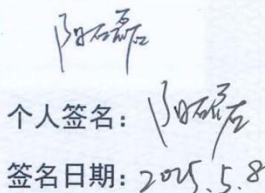 阳磊磊
个人签名：阳磊磊
签名日期：2025.5.8